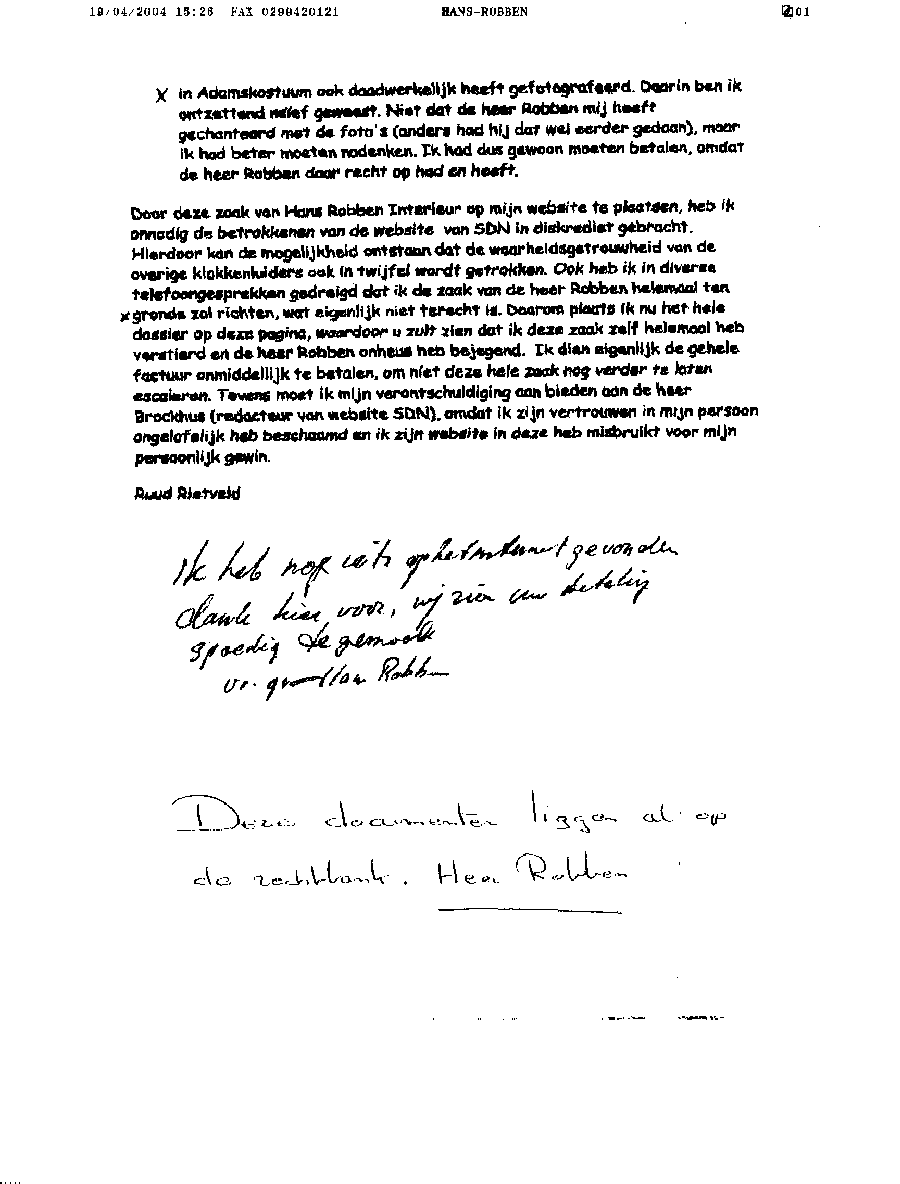 19/04/2004 15:26 FAX 0299420121 HANS-ROBBEN 01
X in Adamskostuum ook daadwerkelijk heeft gefotografeerd. Daarin ben ik
ontzettend naïef geweest. Niet dat de heer Robben mij heeft
gechanteerd met de foto's (anders had hij dat wel eerder gedaan), maar
ik had beter moeten nadenken. Ik had dus gewoon moeten betalen, omdat
de heer Robben daar recht op had en heeft.
Door deze zaak van Hans Robben Interieur op mijn website te plaatsen, heb ik
onnodig de betrokkenen van de website van SDN in diskrediet gebracht.
Hierdoor kan de mogelijkheid ontstaan dat de waarheidsgetrouwheid van de
overige klokkenluiders ook in twijfel wordt getrokken. Ook heb ik in diverse
telefoongesprekken gedreigd dat ik de zaak van de heer Robben helemaal ten
x gronde zal richten, wat eigenlijk niet terecht is. Daarom plaats ik nu het hele
dossier op deze pagina, waardoor u zult zien dat ik deze zaak zelf helemaal heb
verstierd en de heer Robben onheus heb bejegend. Ik dien eigenlijk de gehele
factuur onmiddellijk te betalen, om niet deze hele zaak nog verder te laten
escaleren. Tevens moet ik mijn verontschuldiging aan bieden aan de heer
Brockhus (redacteur van website SDN), omdat ik zijn vertrouwen in mijn persoon
ongelofelijk heb beschaamd en ik zijn website in deze heb misbruikt voor mijn
persoonlijk gewin.
Ruud Rietveld
Ik heb nog iets op het internet gevonden
dank hier voor, wij zien uw betaling
spoedig te gemoed
vr. gr Hans Robben
Deze documenten liggen al op
de rechtbank. Heer Robben